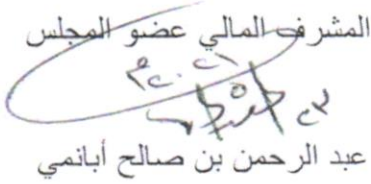 المشرف المالي عضو المجلس
عبد الرحمن بن صالح أبانمي